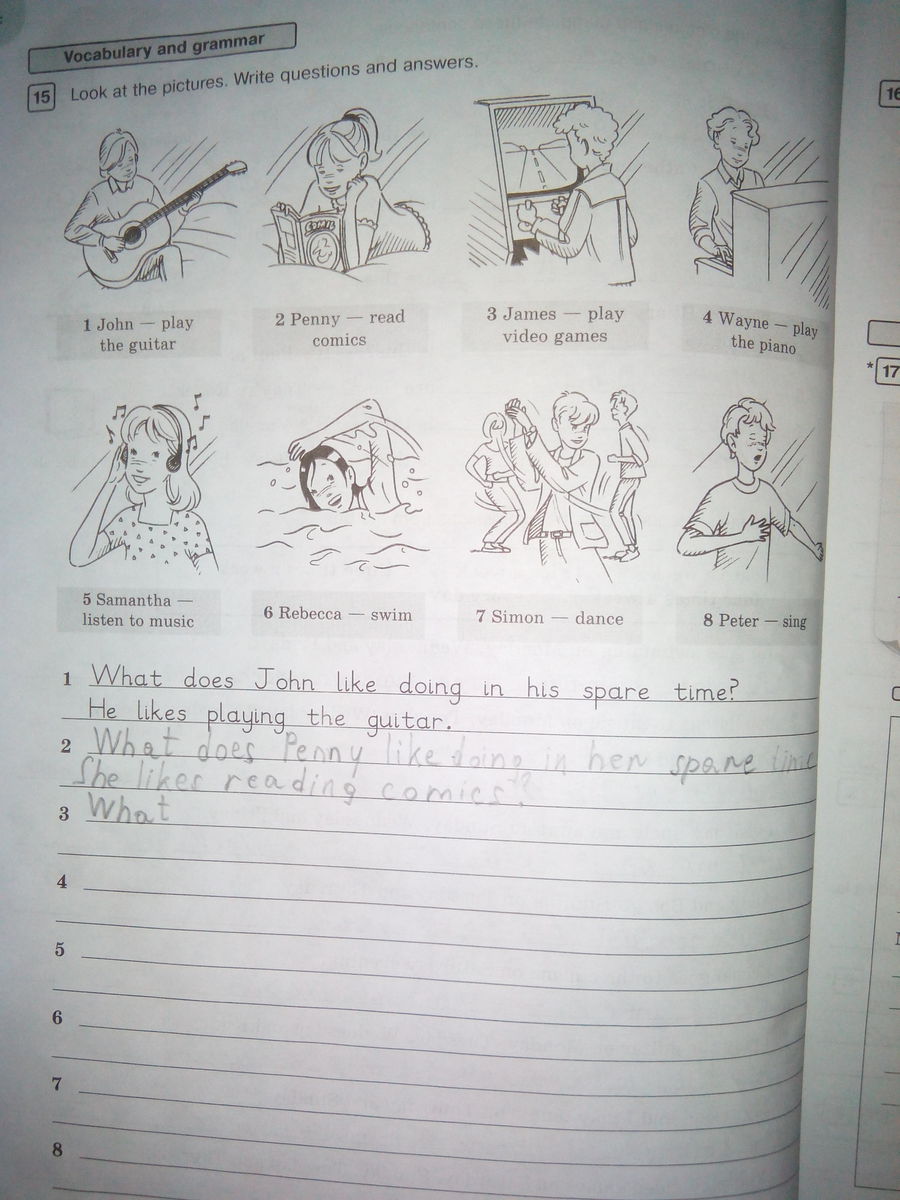 Vocabulary and grammar
15 Look at the pictures. Write questions and answers.
COMIC
1 John — play
the guitar
2 Penny — read
comics
3 James — play
video games
4 Wayne — play
the piano
5 Samantha —
listen to music
6 Rebecca — swim
7 Simon — dance
8 Peter — sing
1 What does John like doing in his spare time?
He likes playing the guitar.
2 What does Penny like doing in her spare time
She likes reading comics.
3 What
4
5
6
7
8
16
* 17